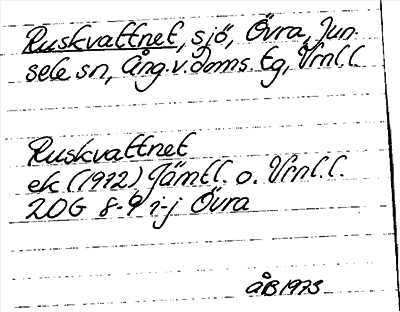 Ruskvattnet, sjö, Övra, Jun-
sele sn, Ång. v. Doms. tg, Vnl. l.
Ruskvattnet
ek (1912) Jämtl. o. Vnl. l.
20G 8-9 i-j Övra
ÅB 1973